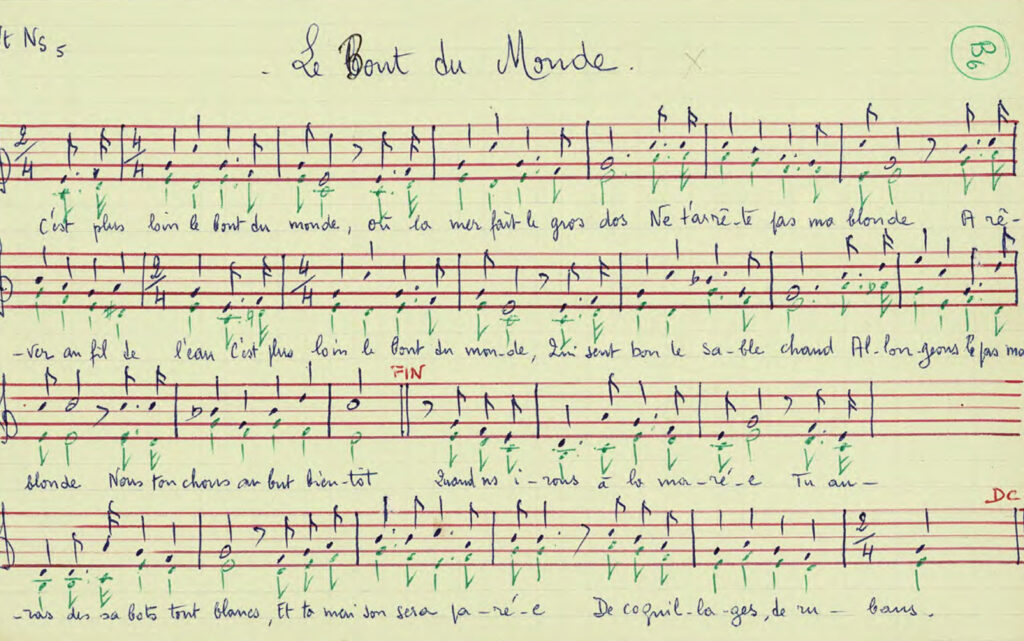 Nt Ns 5
Le Bout du Monde. B6
2/4 4/4
C'est plus loin le bout du monde, où la mer fait le gros dos Ne t'arrê-te pas ma blonde A rê-
2/4 4/4
-ver au fil de l'eau C'est plus loin le bout du mon-de, Qui sent bon le sa-ble chaud Al-lon-geons le pas ma
FIN
blonde Nous touchons au but bien-tôt Quand ns i-rons à la ma-ré-e Tu au-
DC
2/4
-ras des sabots tout blancs, Et ta mai son sera pa-ré-e De coquil-la-ges, de ru-bans.